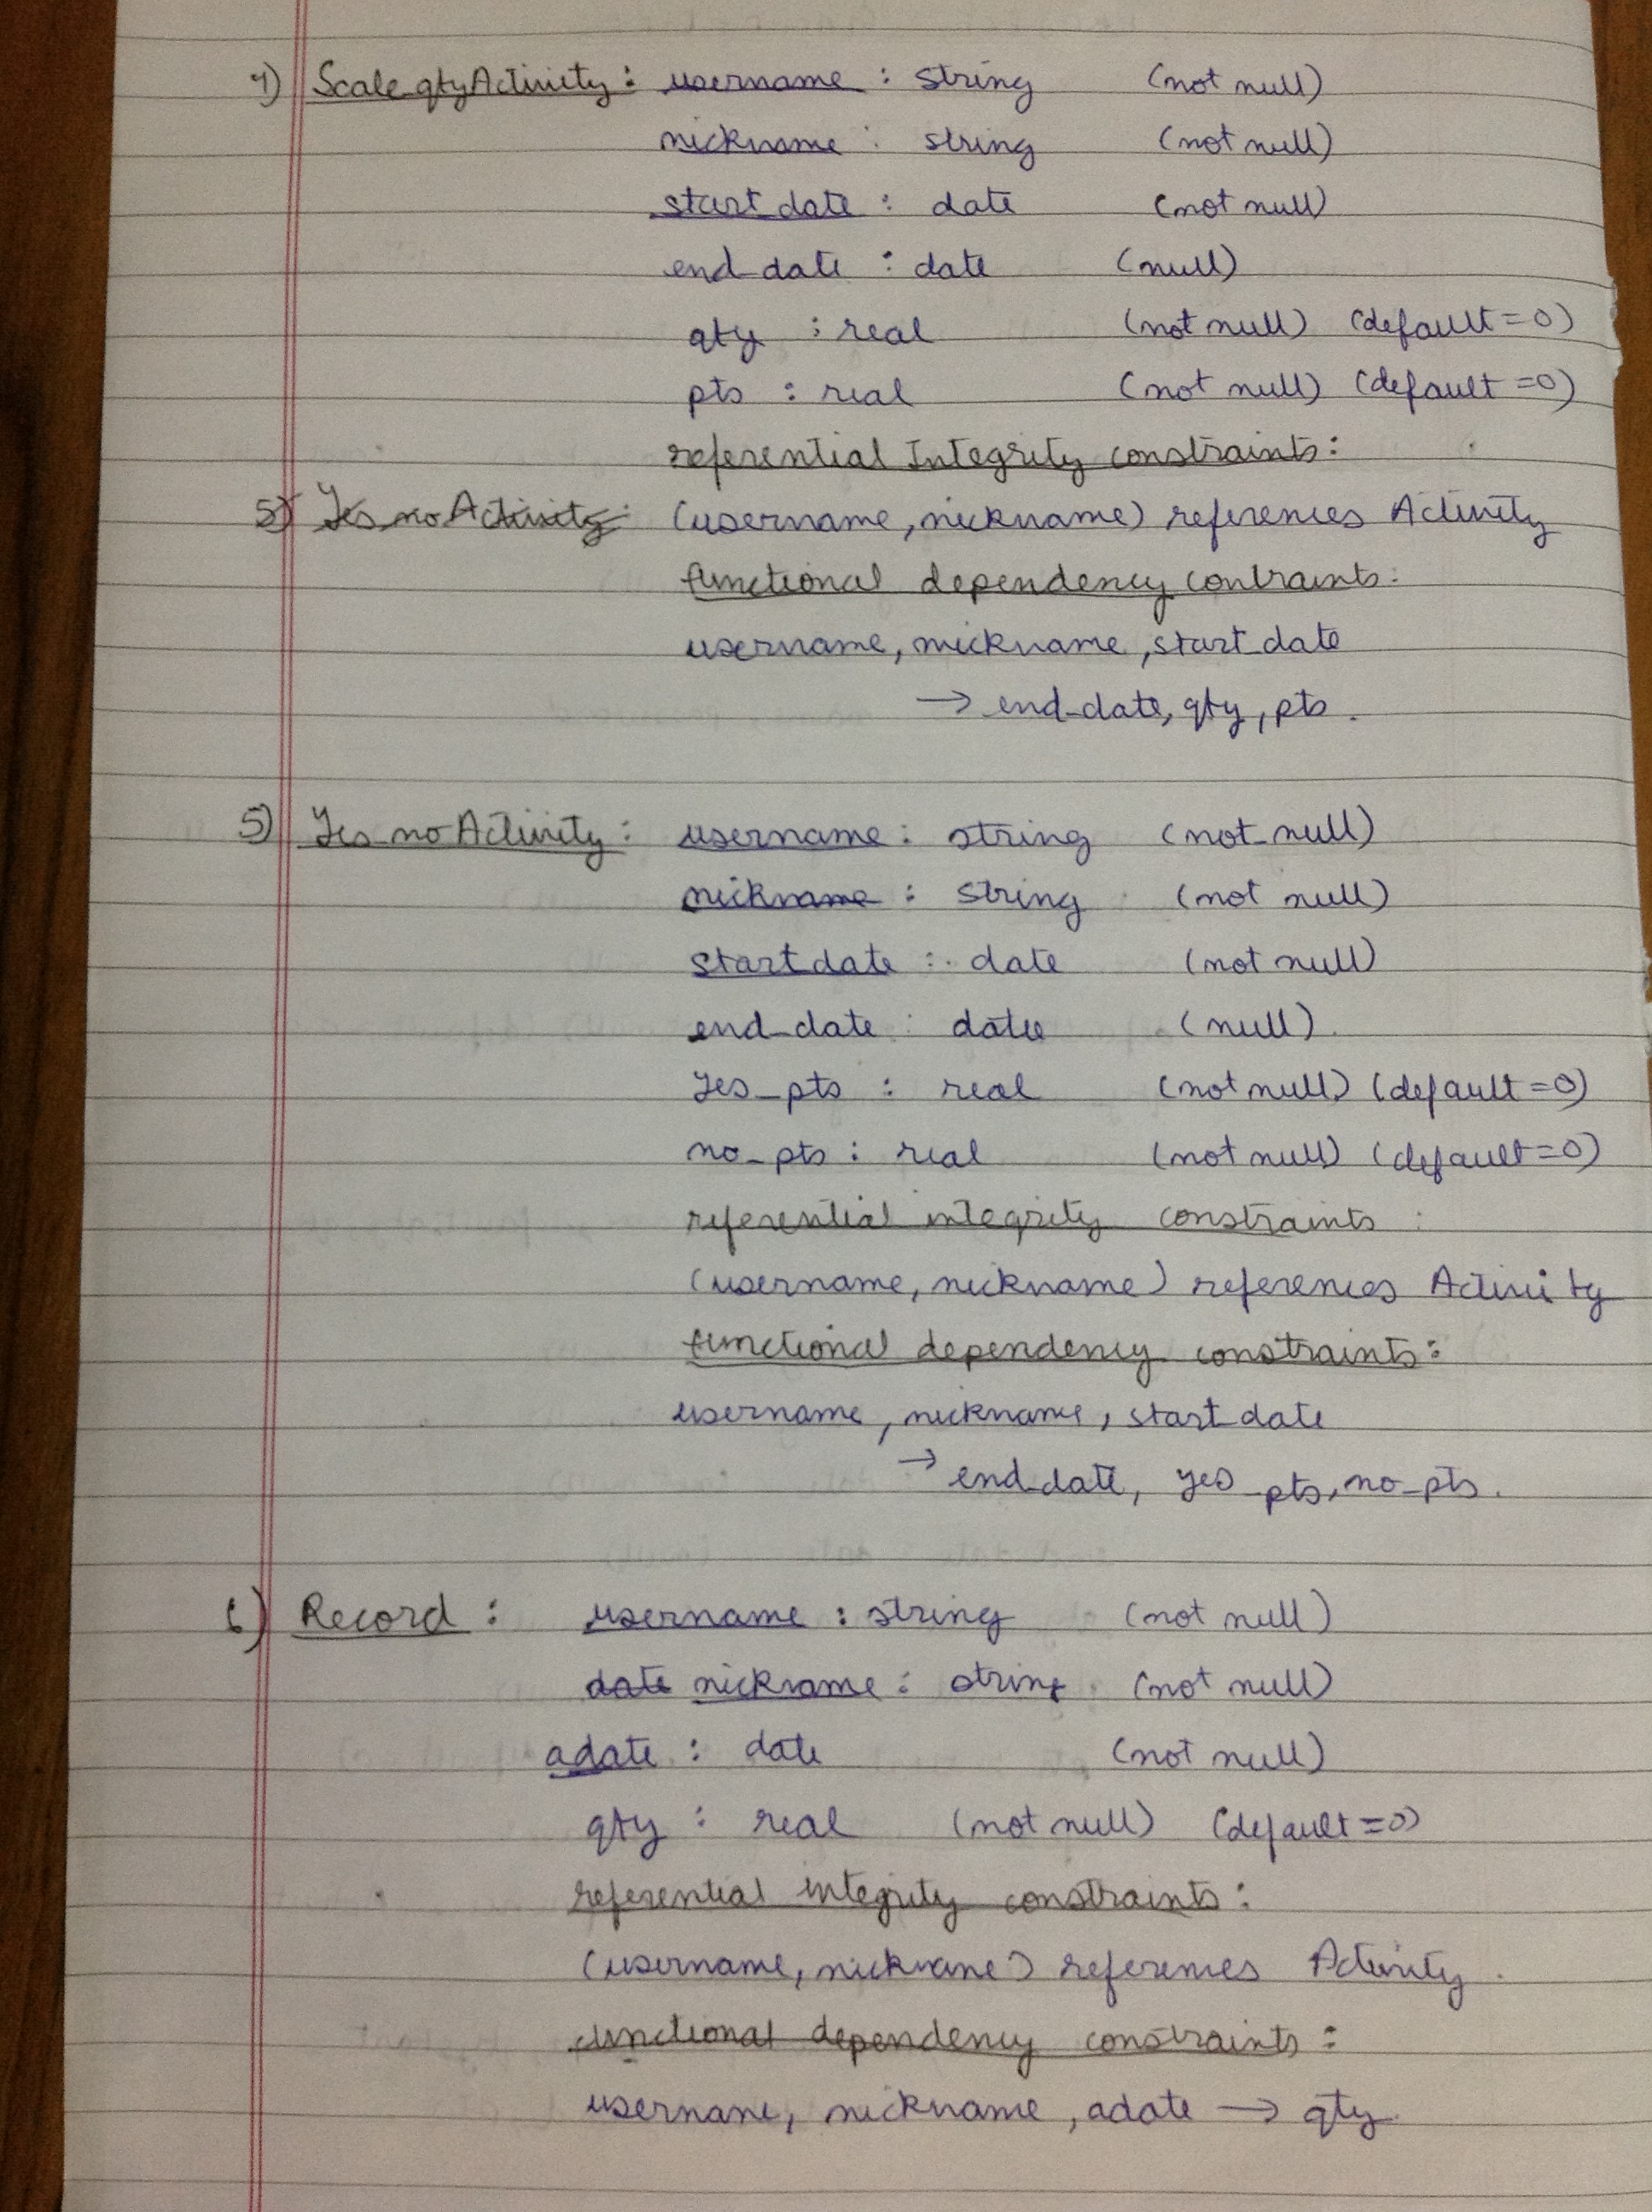 4) Scale_qtyActivity : username : string (not null)
nickname : string (not null)
start_date : date (not null)
end_date : date (null)
qty : real (not null) (default=0)
pts : real (not null) (default=0)
referential Integrity constraints:
5) Yes_noActivity: (username, nickname) references Activity
functional dependency contraints:
username, nickname, start_date
→ end_date, qty, pts.
5) Yes_noActivity : username : string (not null)
nickname : string (not null)
start_date : date (not null)
end_date : date (null)
Yes_pts : real (not null) (default=0)
no_pts : real (not null) (default=0)
referential integrity constraints :
(username, nickname) references Activity
functional dependency constraints:
username, nickname, start_date
→ end_date, yes_pts, no_pts.
6) Record : username : string (not null)
date nickname : string (not null)
adate : date (not null)
qty : real (not null) (default=0)
referential integrity constraints:
(username, nickname) references Activity.
functional dependency constraints:
username, nickname, adate → qty.